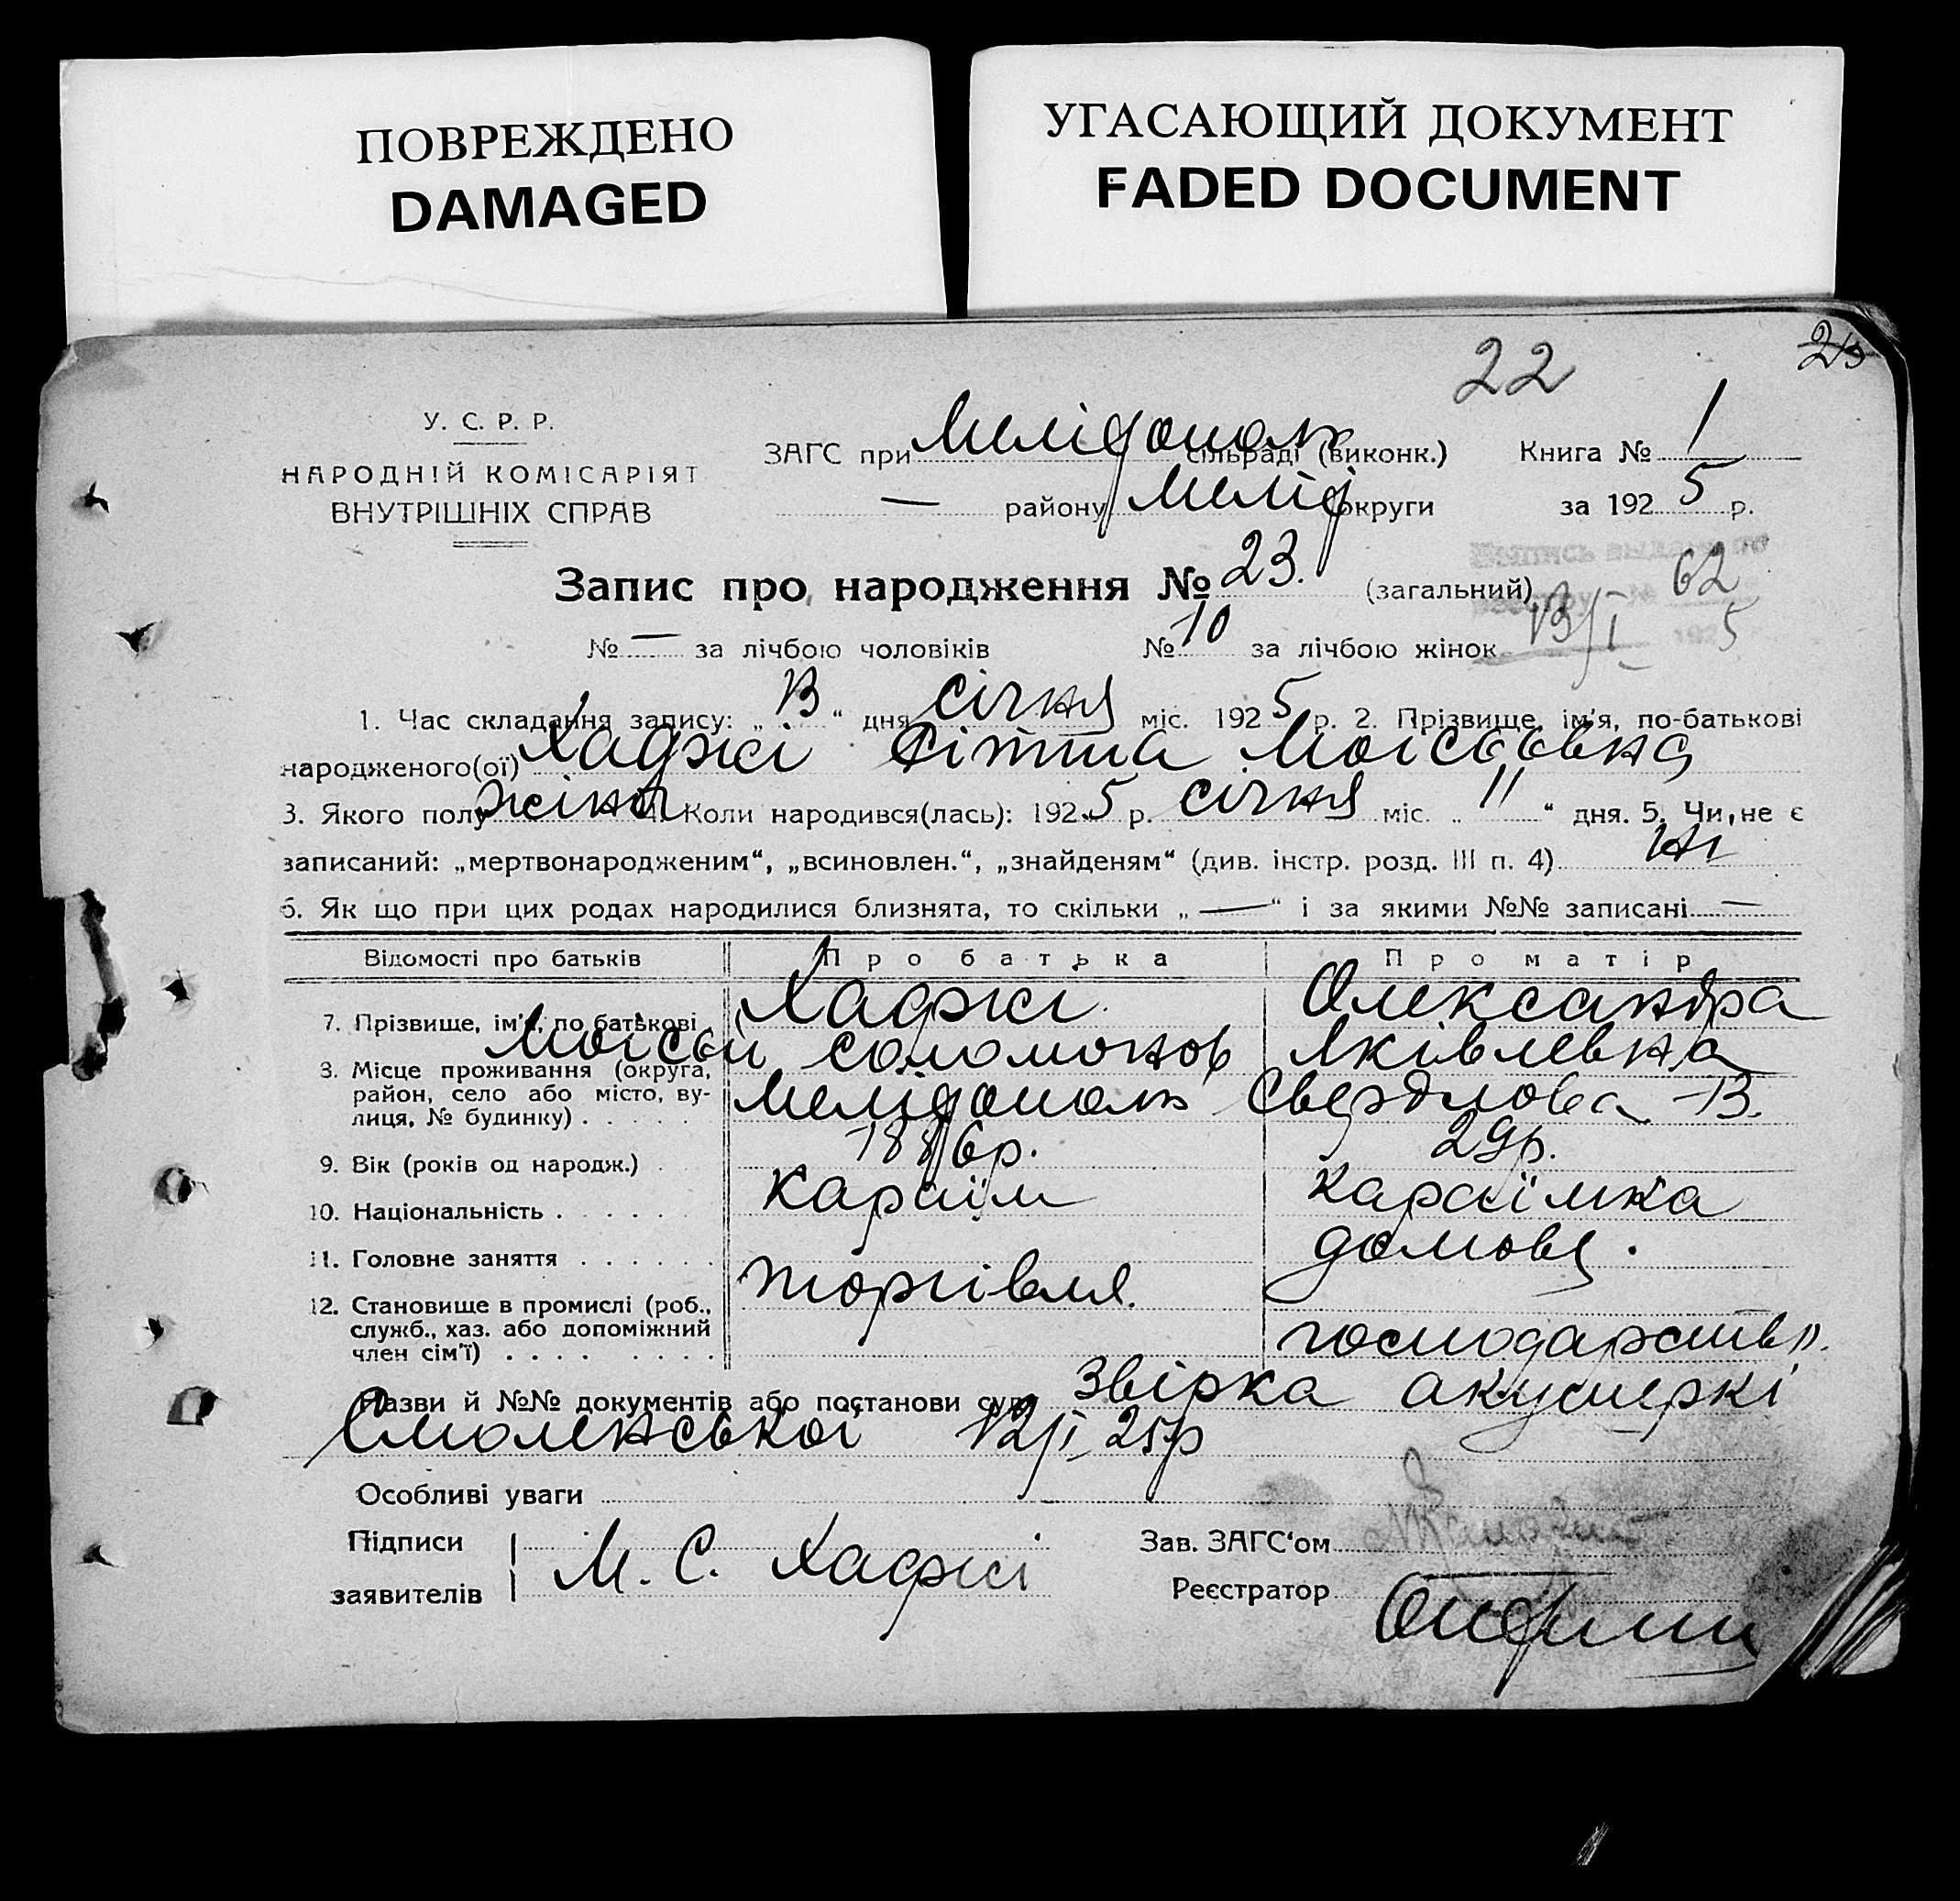 ПОВРЕЖДЕНО
DAMAGED
УГАСАЮЩИЙ ДОКУМЕНТ
FADED DOCUMENT
22
У. С. Р. Р.
НАРОДНІЙ КОМІСАРІЯТ
ВНУТРІШНІХ СПРАВ
ЗАГС при Мелідополь сільраді (виконк.) Книга № 1
— району Мелід округи за 1925 р.
Запис про народження № 23. (загальний)
62
№ — за лічбою чоловіків № 10 за лічбою жінок 13/I 1925
1. Час складання запису: „13“ дня січня міс. 1925 р. 2. Прізвище, ім'я, по-батькові
народженого(ої) Хаджі Моісеєвна
3. Якого полу жіноч 4. Коли народився(лась): 1925 р. січня міс. „11“ дня. 5. Чи не є
записаний: „мертвонародженим“, „всиновлен.“, „знайденям“ (див. інстр. розд. III п. 4) ні
6. Як що при цих родах народилися близнята, то скільки „—“ і за якими №№ записані —
Відомості про батьків Про батька Про матір
7. Прізвище, ім'я, по батькові Хаджі Олександра
Моісей Соломонов Яківлевна
8. Місце проживання (округа,
район, село або місто, ву-
лиця, № будинку) . . . . . Мелідополь Свердлова 13.
9. Вік (років од народж.) . 1886р. 29р.
10. Національність . . . . . . караїм караїмка
11. Головне заняття . . . . . . торгівля. домовє.
12. Становище в промислі (роб.,
служб., хаз. або допоміжний
член сім'ї) . . . . . . . . господарств.
Назви й №№ документів або постанови суду звірка акушеркі
Смоленської 12/I 25р
Особливі уваги
Підписи
заявителів М. С. Хаджі
Зав. ЗАГС'ом
Реєстратор